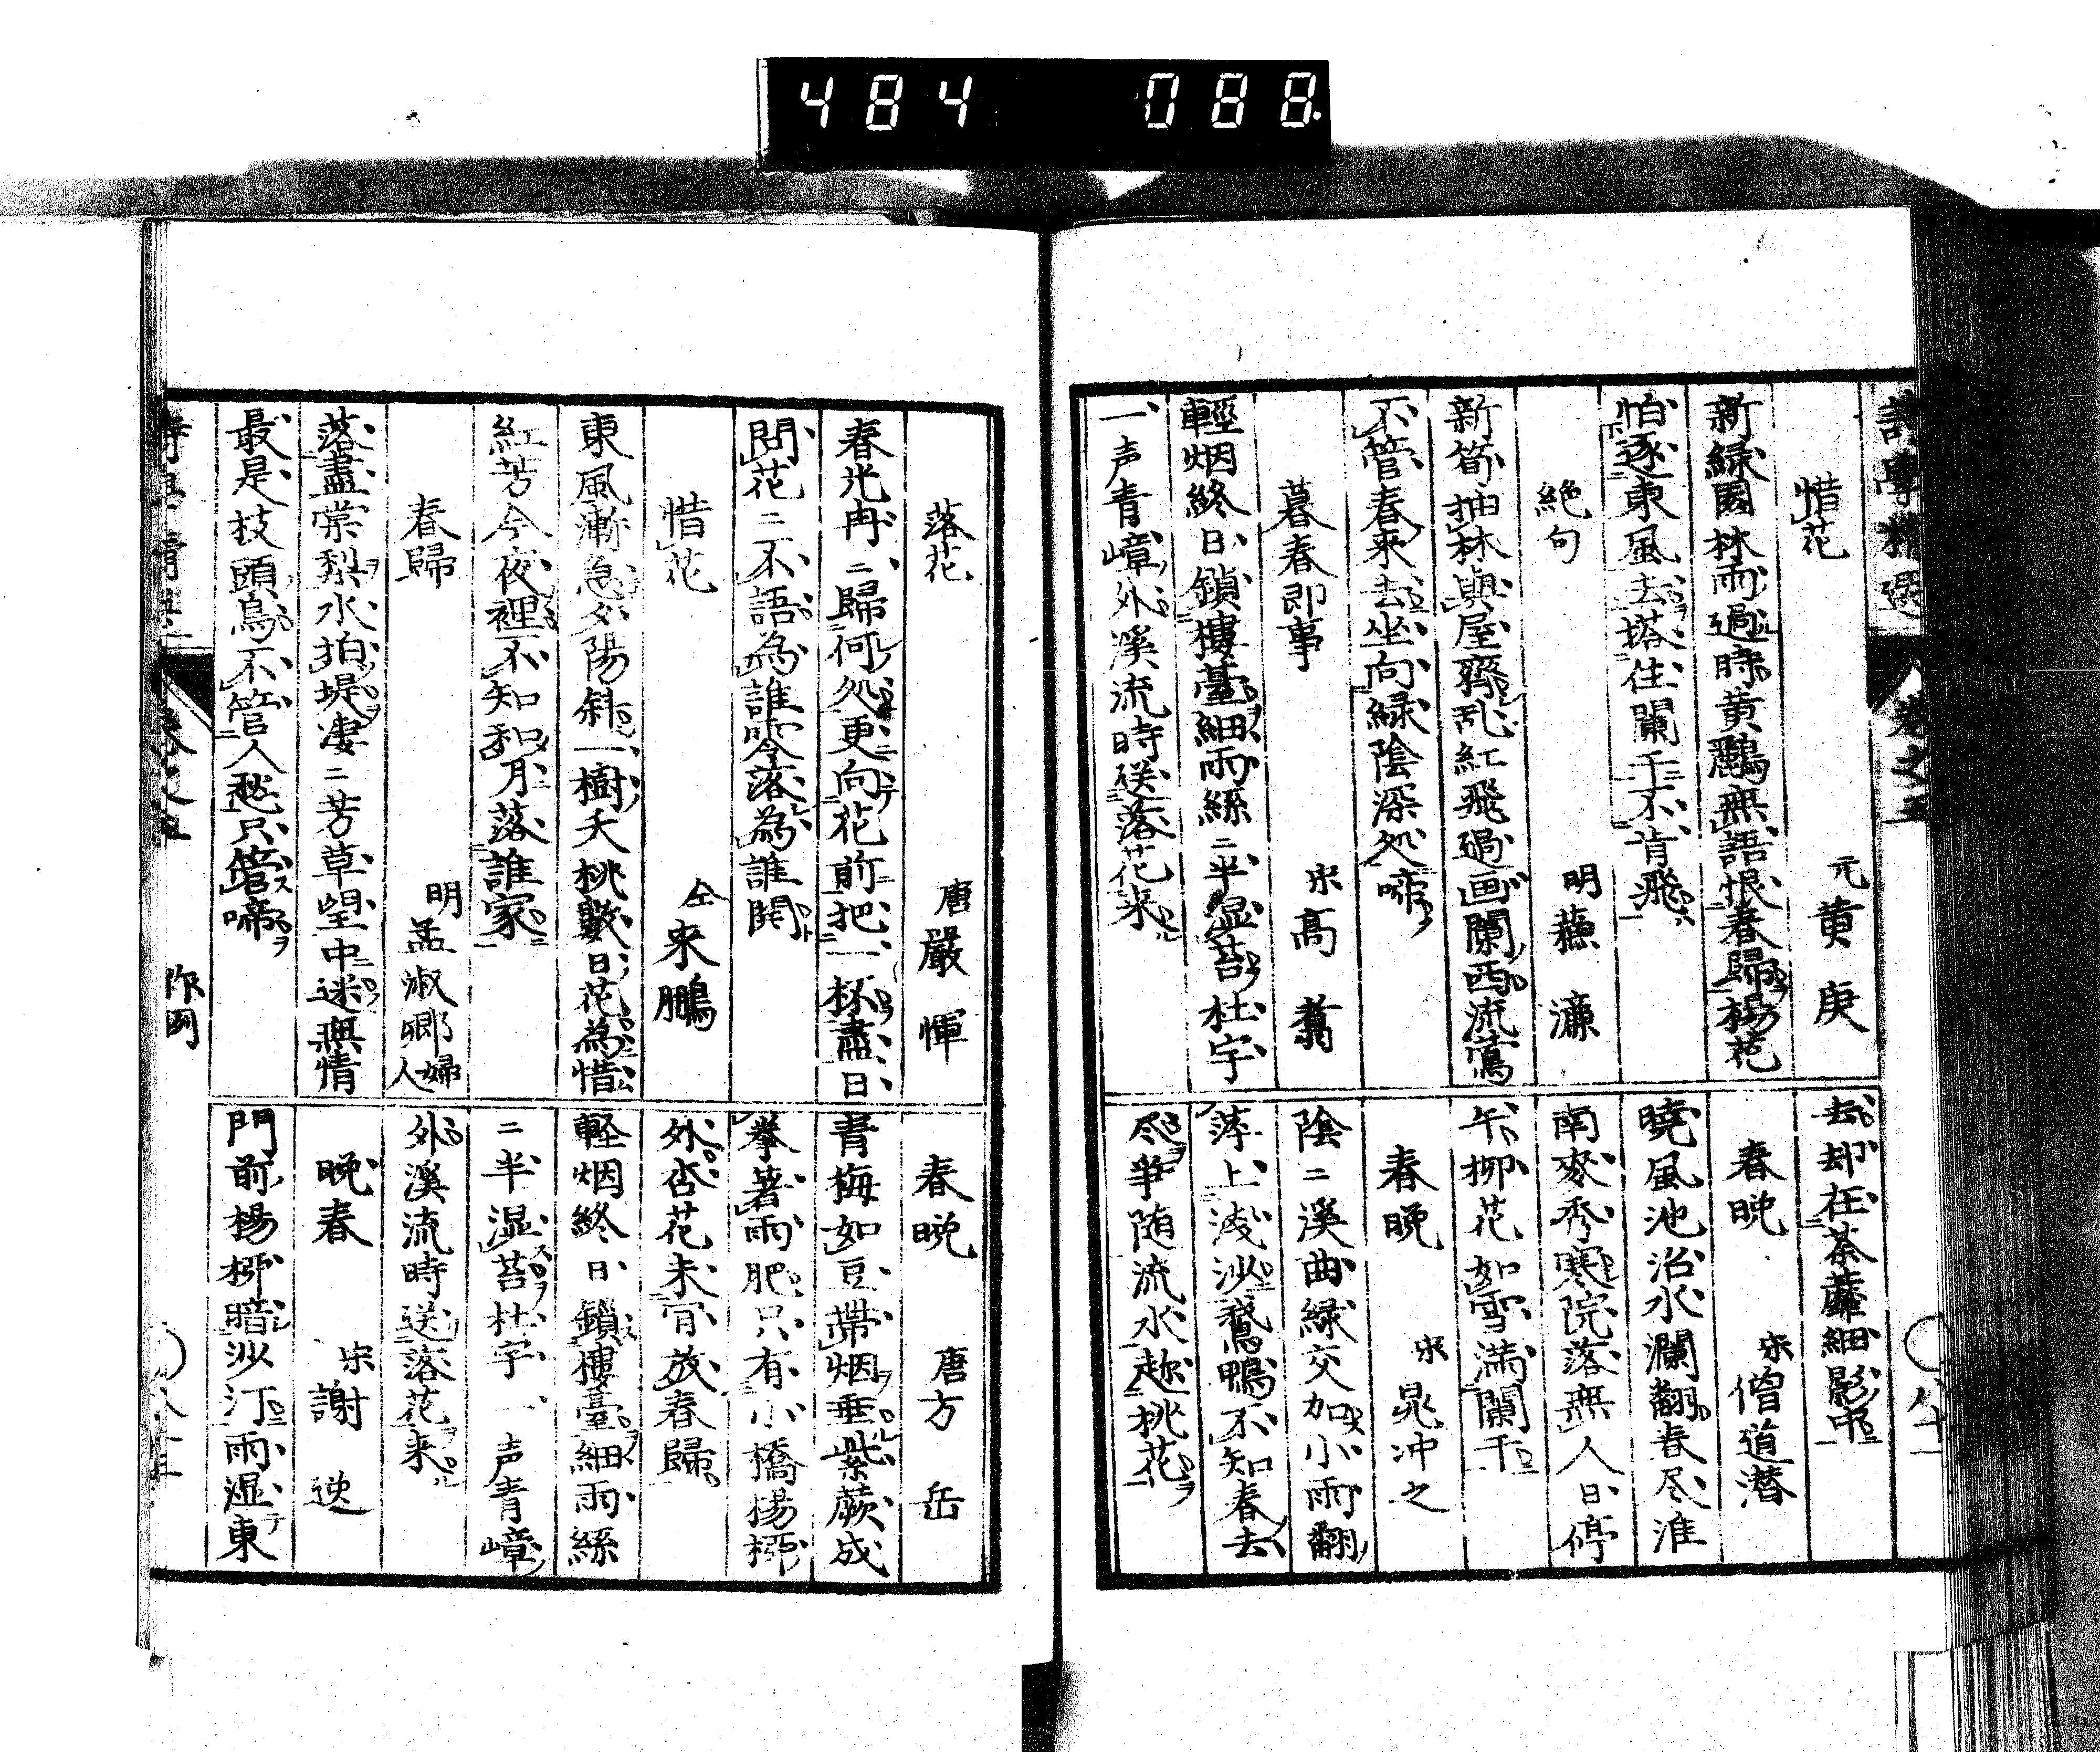 484 088.
惜花
元 黄庚
新緑園林雨過時黄鸝無語恨春歸楊花
怕逐東風去搭住闌干不肯飛
絶句
明 蘓濂
新筍抽林與屋齊乱紅飛過画闌西流鶯
不管春来去坐向緑陰深処啼
暮春即事
宋 高翥
輕烟終日鎖樓臺細雨絲二半湿苔杜宇
一声青嶂外溪流時送落花来
去却在荼蘼細影中
春晩
宋 僧道潜
曉風池沼水瀾翻春尽淮
南麥秀寒院落無人日停
午柳花如雪満闌干
春晩
宋 晁冲之
陰二溪曲緑交加小雨翻
萍上浅沙鵞鴨不知春去
尽争随流水趂桃花
落花
唐 嚴惲
春光冉二歸何処更向花前把一杯盡日
問花二不語為誰零落為誰開
惜花
仝 来鵬
東風漸急夕陽斜一樹夭桃數日花為惜
紅芳今夜裡不知和月落誰家
春歸
明 孟淑卿婦人
落盡棠梨水拍堤凄二芳草望中迷無情
最是枝頭鳥不管人愁只管啼
春晩
唐 方岳
青梅如豆帯烟垂紫蕨成
拳著雨肥只有小橋楊柳
外杏花未肯放春歸
軽烟終日鎖樓臺細雨絲
二半湿苔杜宇一声青嶂
外溪流時送落花来
晩春
宋 謝逸
門前楊柳暗沙汀雨湿東